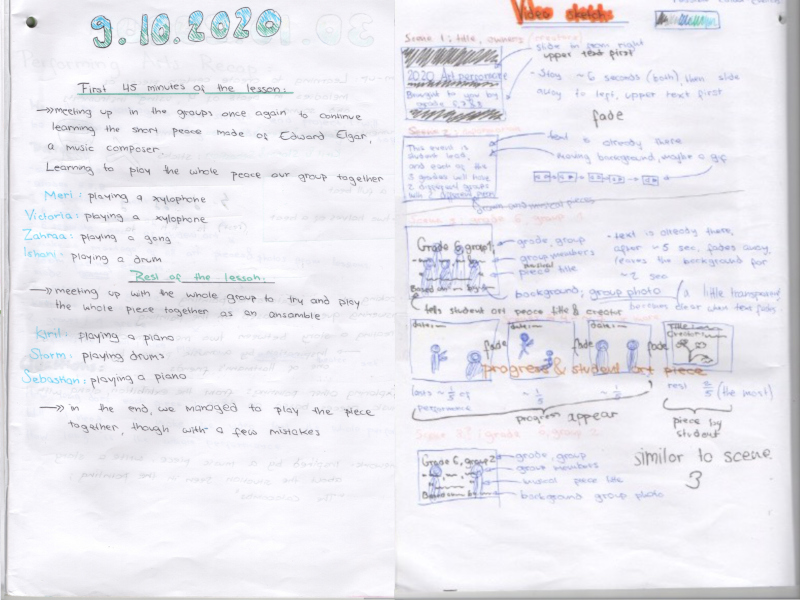 9.10.2020
First 45 minutes of the lesson:
→ meeting up in the groups once again to continue
learning the short peace made of Edward Elgar,
a music composer.
Learning to play the whole peace our group together
Meri: playing a xylophone
Victoria: playing a xylophone
Zahraa: playing a gong
Ishani: playing a drum
Rest of the lesson:
→ meeting up with the whole group to try and play
the whole piece together as an ansamble
Kyril: playing a piano
Storm: playing drums
Sebastian: playing a piano
→ in the end, we managed to play the piece
together, though with a few mistakes
Video sketch
Scene 1: title, owners (creators)
slide in from right
upper text first
2020 Art performance
Brought to you by
grade 6,7&8
• Stay ~6 seconds (both), then slide
away to left, upper text first
fade
Scene 2:
This event is
student lead,
and each of the
3 grades will have
2 different groups
with 2 different pieces
text is already there
moving background, maybe a gif
Scene 3: grade 6, group 1
Grade 6, group 1
Based on by
grade, group
group members
musical
piece title
background; group photo
• text is already there,
after ~5 sec, fades away,
leaves the background for
~2 sec
(a little transparent,
becomes clear when text fades
tells student art peace title & creator
date:
fade
date:
date:
fade
Title
Creator
progress & student art piece
lasts ~1/5 of
performance
~1/5
~1/5
rest 2/5 (the most)
progress appear
piece by
student
group 2
Grade 6, group 2
Based on by
grade, group
group members
musical piece title
background group photo
similar to scene
3